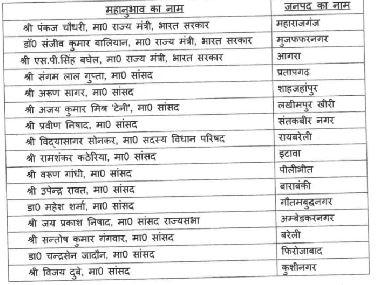 महानुभाव का नाम जनपद का नाम
श्री पंकज चौधरी, मा0 राज्य मंत्री, भारत सरकार महाराजगंज
डॉ0 संजीव कुमार बालियान, मा0 राज्य मंत्री, भारत सरकार मुजफफरनगर
श्री एस.पी.सिंह बघेल, मा0 राज्य मंत्री, भारत सरकार आगरा
श्री संगम लाल गुप्ता, मा0 सांसद प्रतापगढ़
श्री अरूण सागर, मा0 सांसद शाहजहांपुर
श्री अजय कुमार मिश्र 'टेनी', मा0 सांसद लखीमपुर खीरी
श्री प्रवीण निषाद, मा0 सांसद संतकबीर नगर
श्री विद्यासागर सोनकर, मा0 सदस्य विधान परिषद रायबरेली
श्री रामशंकर कठेरिया, मा0 सांसद इटावा
श्री वरूण गांधी, मा0 सांसद पीलीभीत
श्री उपेन्द्र रावत, मा0 सांसद बाराबंकी
डा0 महेश शर्मा, मा0 सांसद गौतमबुद्धनगर
श्री जय प्रकाश निषाद, मा0 सांसद राज्यसभा अम्बेडकरनगर
श्री सन्तोष कुमार गंगवार, मा0 सांसद बरेली
डा0 चन्द्रसेन जादौन, मा0 सांसद फिरोजाबाद
श्री विजय दुबे, मा0 सांसद कुशीनगर